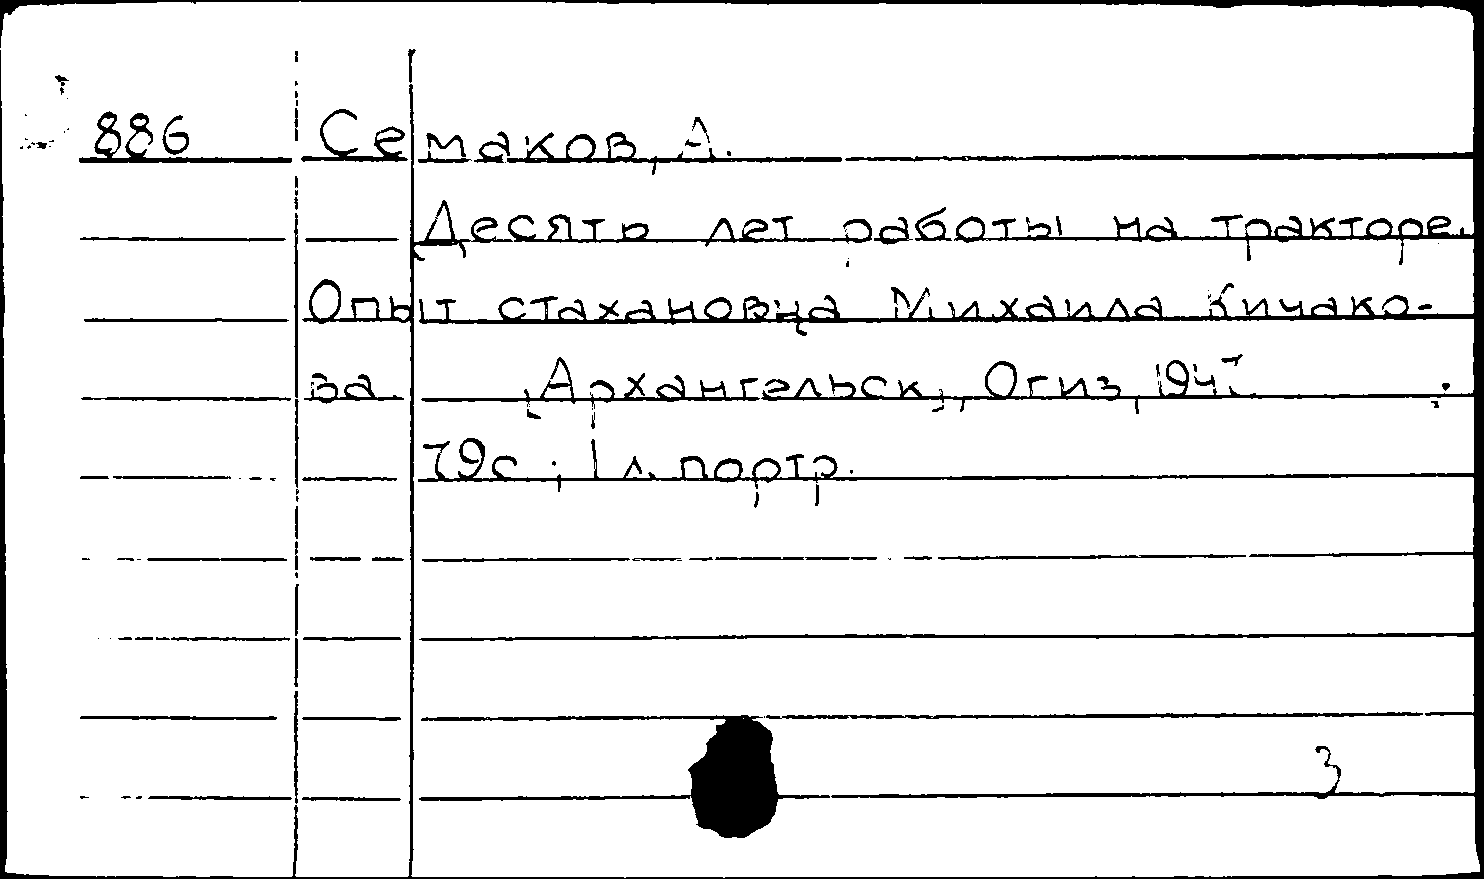 886 Семаков, А.
Десять лет работы на тракторе.
Опыт стахановца Михаила Кичако-
ва. [Архангельск], Огиз, 1947.
79с.; 1 л. портр.
3